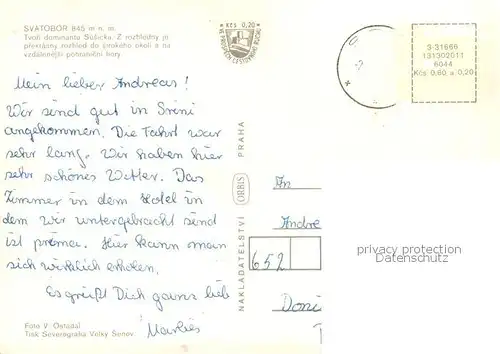 SVATOBOR 845 m n. m.
Tvoří dominantu Sušicka. Z rozhledny je
překrásný rozhled do širokého okolí a na
vzdálenější pohraniční hory
Kčs 0,20
3-31666
131302011
6044
Kčs 0,60 a 0,20
Mein lieber Andreas!
Wir sind gut in Srni
angekommen. Die Fahrt war
sehr lang. Wir haben hier
sehr schönes Wetter. Das
Zimmer in dem Hotel in
dem wir untergebracht sind
ist prima. Hier kann man
sich wirklich erholen.
Es grüßt Dich ganz lieb
Marlies
Foto V. Ostádal
Tisk Severografia Velký Šenov
NAKLADATELSTVÍ ORBIS PRAHA
An
Andre
652
Doni
privacy protection
Datenschutz